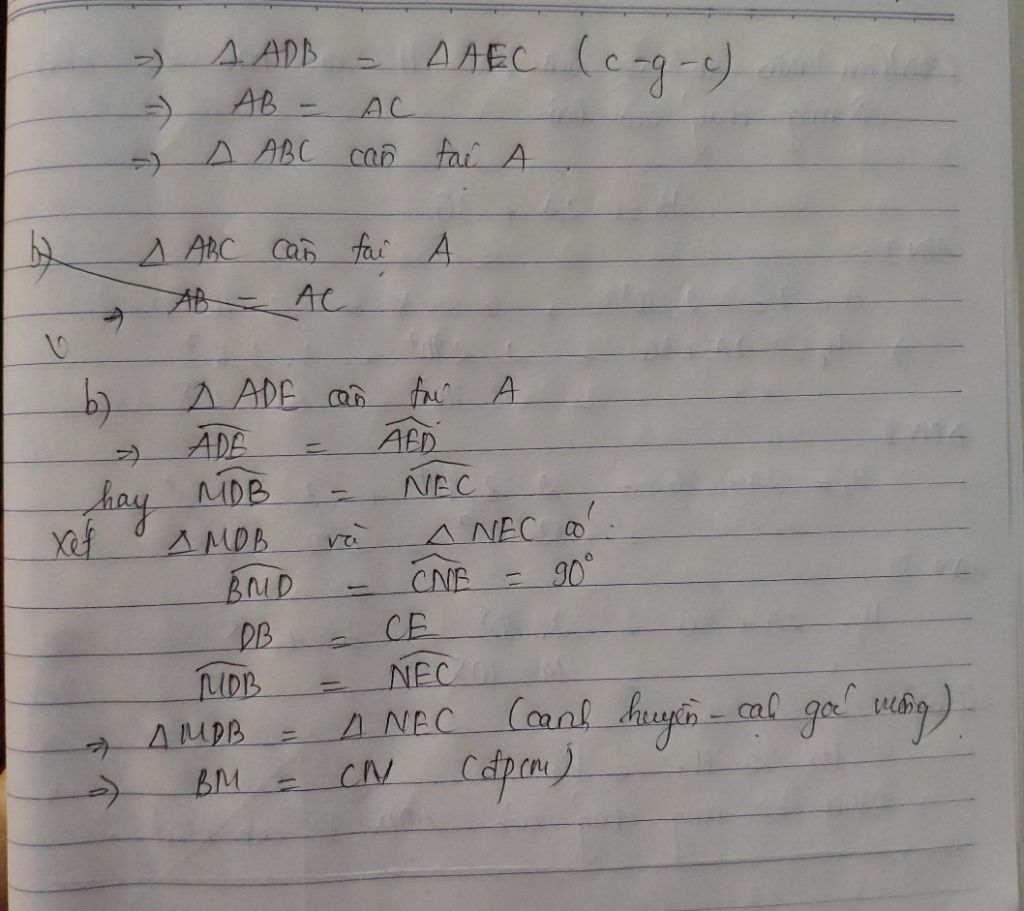 => Δ ADB = Δ AEC (c-g-c)
=> AB = AC
=> Δ ABC cân tại A.
b) Δ ABC cân tại A
=> AB = AC
b) Δ ADE cân tại A
=> \widehat{ADE} = \widehat{AED}
hay \widehat{MDB} = \widehat{NEC}
Xét Δ MDB và Δ NEC có:
\widehat{BMD} = \widehat{CNE} = 90°
DB = CE
\widehat{MDB} = \widehat{NEC}
=> Δ MDB = Δ NEC (cạnh huyền - cạh góc vuông)
=> BM = CN (đpcm)